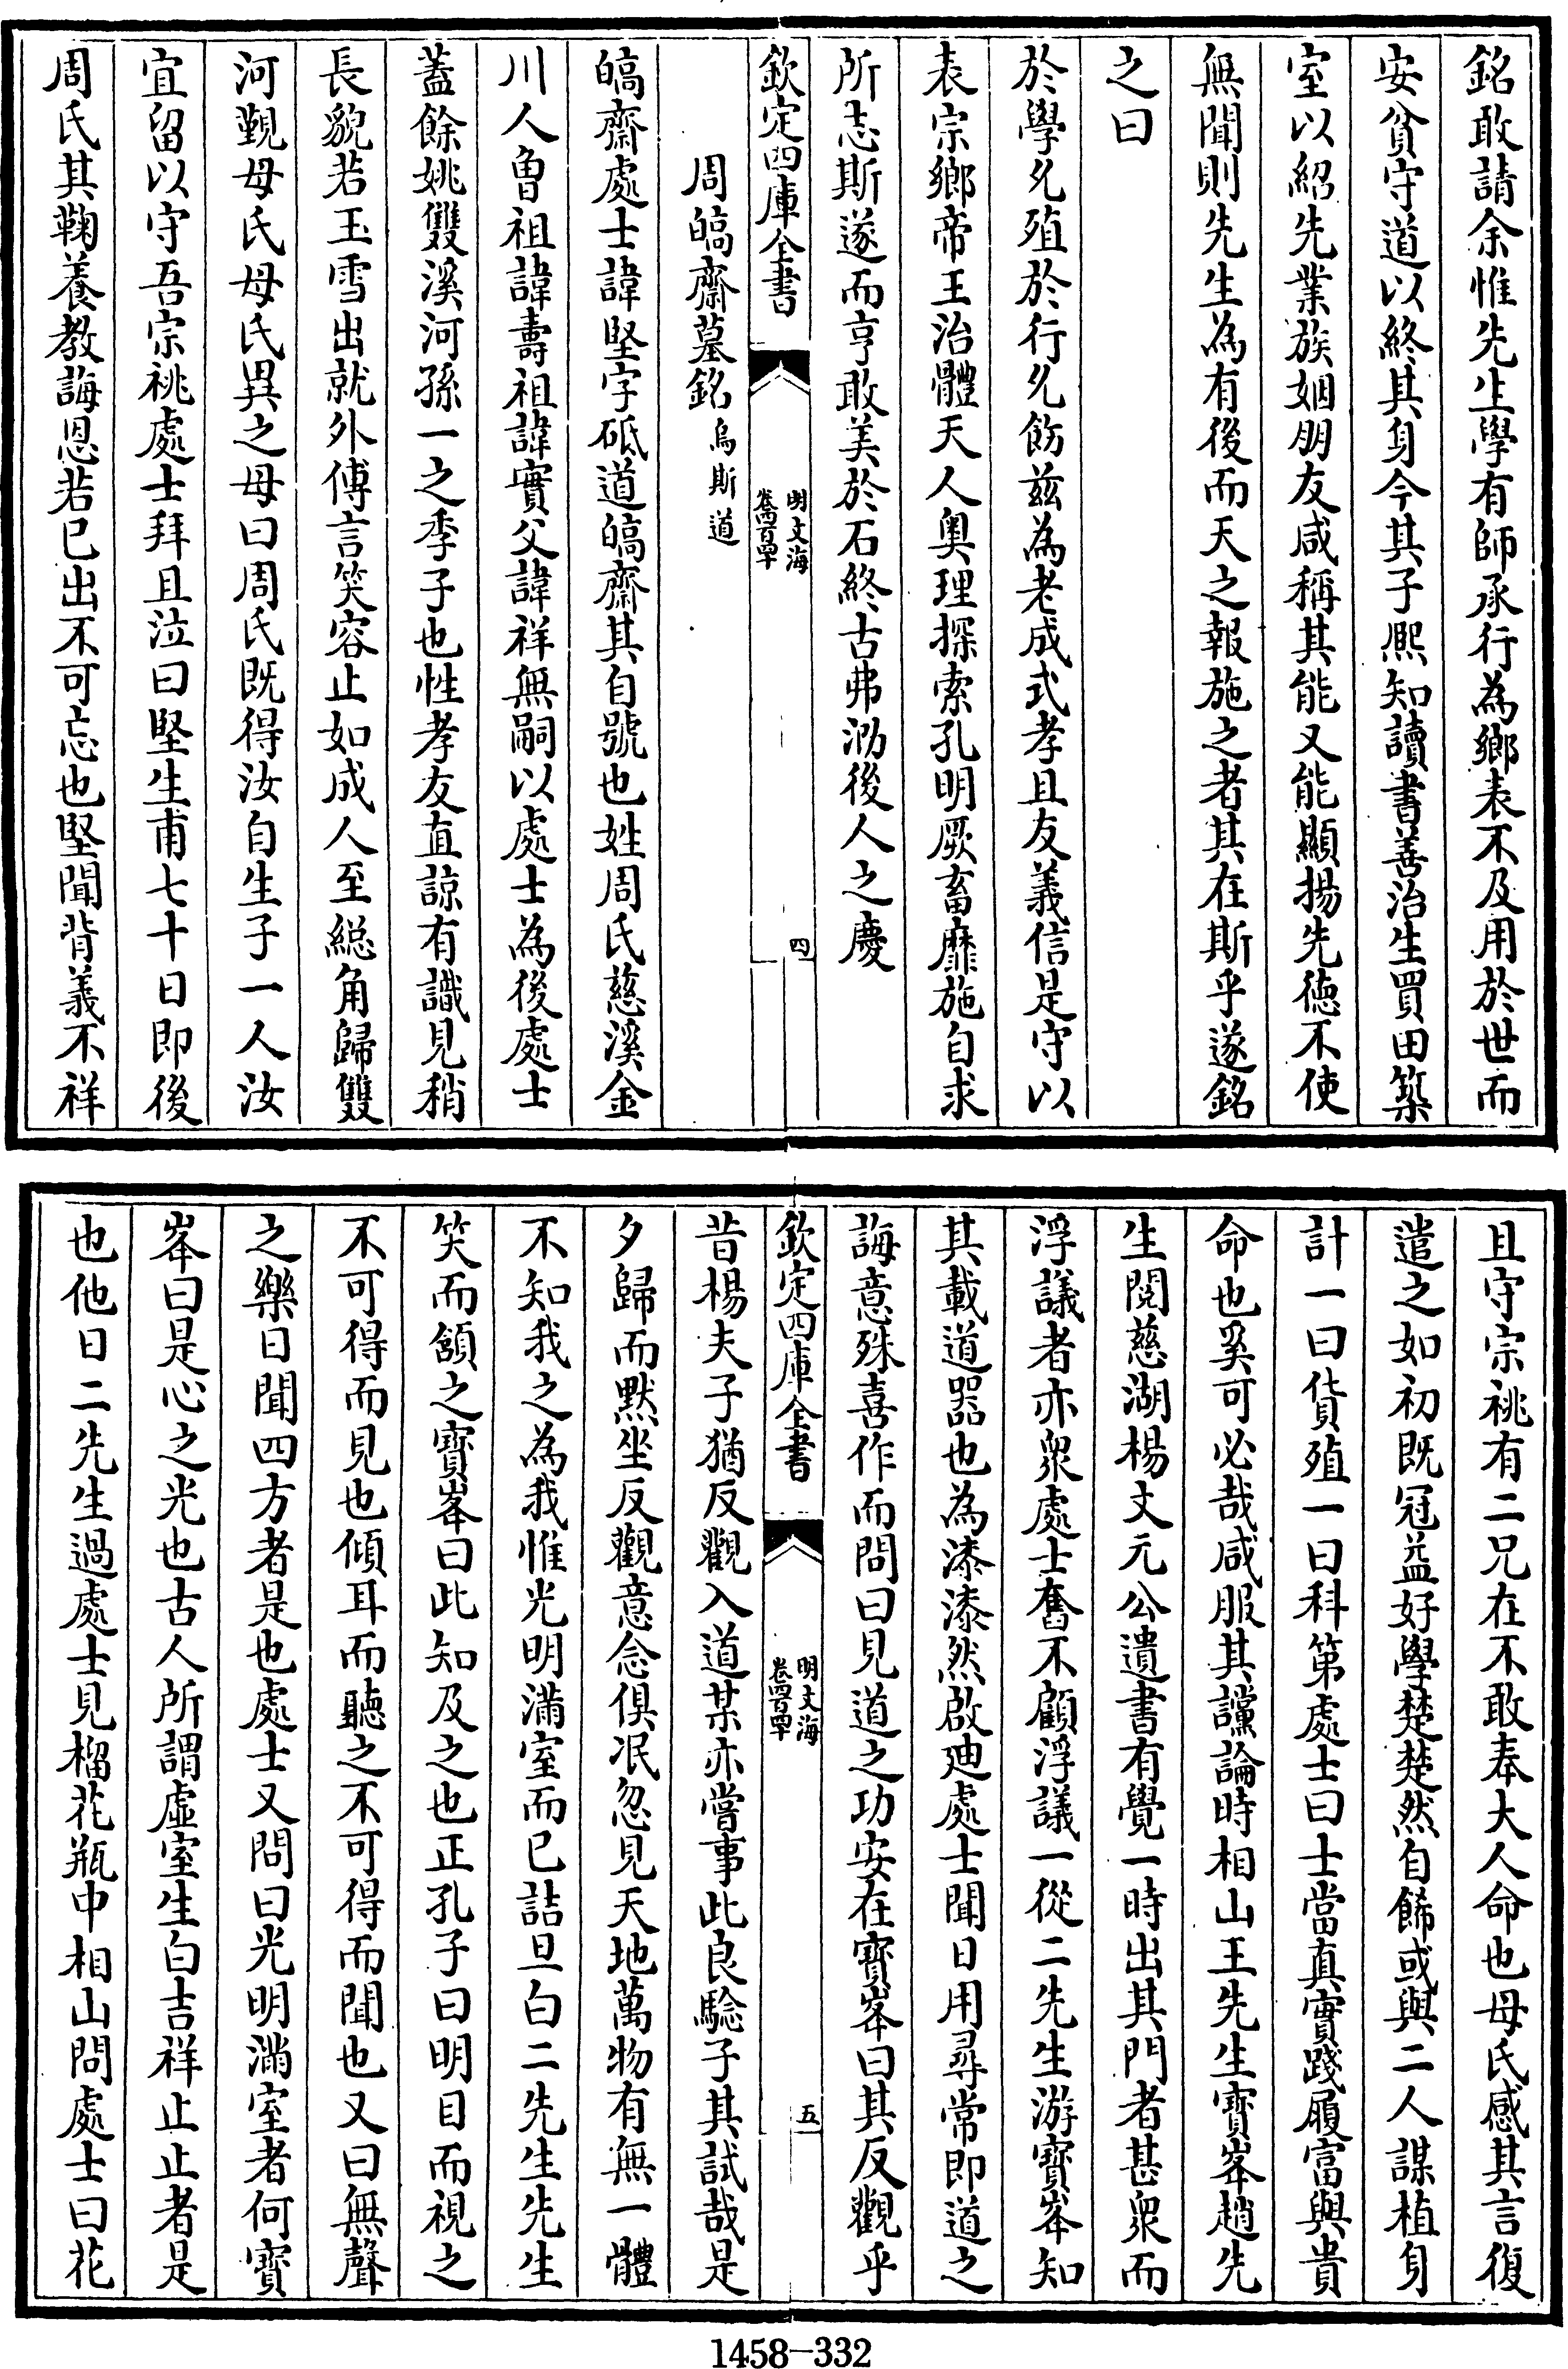 銘敢請余惟先生學有師承行為鄉表不及用於世而
安貧守道以終其身今其子熈知讀書善治生買田築
室以紹先業族姻朋友咸稱其能又能顯揚先徳不使
無聞則先生為有後而天之報施之者其在斯乎遂銘
之曰
於學乆殖於行乆飭兹為老成式孝且友義信是守以
表宗鄉帝王治體天人奥理探索孔明厥畜靡施自求
所志斯遂而亨敢美於石終古弗泐後人之慶
欽定四庫全書
明文海
卷四百四十
四
周皜齋墓銘烏斯道
皜齋處士諱堅字砥道皜齋其自號也姓周氏慈溪金
川人曽祖諱壽祖諱實父諱祥無嗣以處士為後處士
蓋餘姚雙溪河孫一之季子也性孝友直諒有識見稍
長貌若玉雪出就外傅言笑容止如成人至緫角歸雙
河覲母氏母氏異之母曰周氏既得汝自生子一人汝
宜留以守吾宗祧處士拜且泣曰堅生甫七十日即後
周氏其鞠養教誨恩若已出不可忘也堅聞背義不祥
且守宗祧有二兄在不敢奉大人命也母氏感其言復
遣之如初既冠益好學楚楚然自飾或與二人謀植身
計一曰貨殖一曰科第處士曰士當真實踐履富與貴
命也奚可必哉咸服其讜論時相山王先生寳峯趙先
生閲慈湖楊文元公遺書有覺一時出其門者甚衆而
浮議者亦衆處士奮不顧浮議一從二先生游寳峯知
其載道器也為漆漆然啟廸處士聞日用尋常即道之
誨意殊喜作而問曰見道之功安在寳峯曰其反觀乎
欽定四庫全書
明文海
卷四百四十
五
昔楊夫子猶反觀入道某亦嘗事此良騐子其試哉是
夕歸而黙坐反觀意念俱冺忽見天地萬物有無一體
不知我之為我惟光明滿室而已詰旦白二先生先生
笑而頷之寳峯曰此知及之也正孔子曰明目而視之
不可得而見也傾耳而聽之不可得而聞也又曰無聲
之樂日聞四方者是也處士又問曰光明滿室者何寳
峯曰是心之光也古人所謂虚室生白吉祥止止者是
也他日二先生過處士見榴花瓶中相山問處士曰花
1458-332